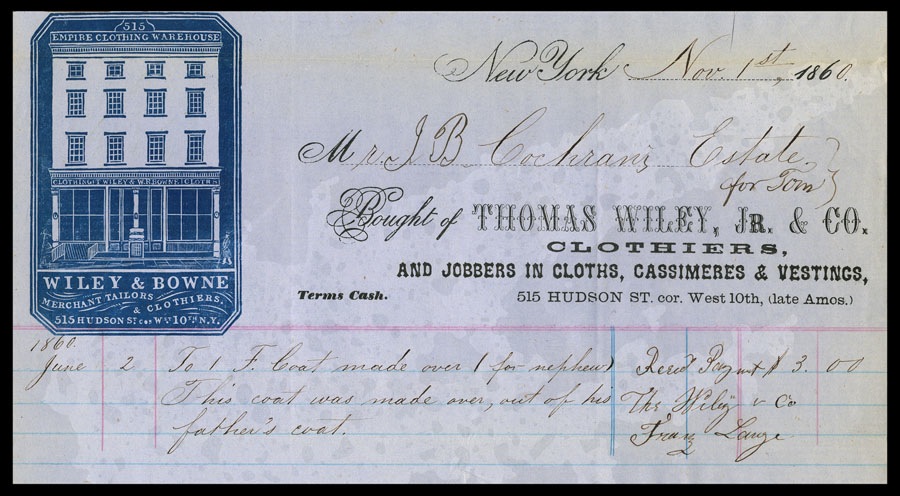 515
EMPIRE CLOTHING WAREHOUSE
CLOTHING T WILEY & W.R. BOWNE CLOTHS
WILEY & BOWNE
MERCHANT TAILORS
& CLOTHIERS,
515 HUDSON ST. cor W. 10TH N.Y.
New York Nov. 1st, 1860.
Mr. J B Cochran's Estate.
for Tom
Bought of THOMAS WILEY, JR. & CO.
CLOTHIERS,
AND JOBBERS IN CLOTHS, CASSIMERES & VESTINGS,
Terms Cash.
515 HUDSON ST. cor. West 10th, (late Amos.)
1860.
June 2 To 1 F. Coat made over (for nephew) Recd Paymt $ 3.00
This coat was made over, out of his Tho Wiley & Co
father's coat. Franz Lange